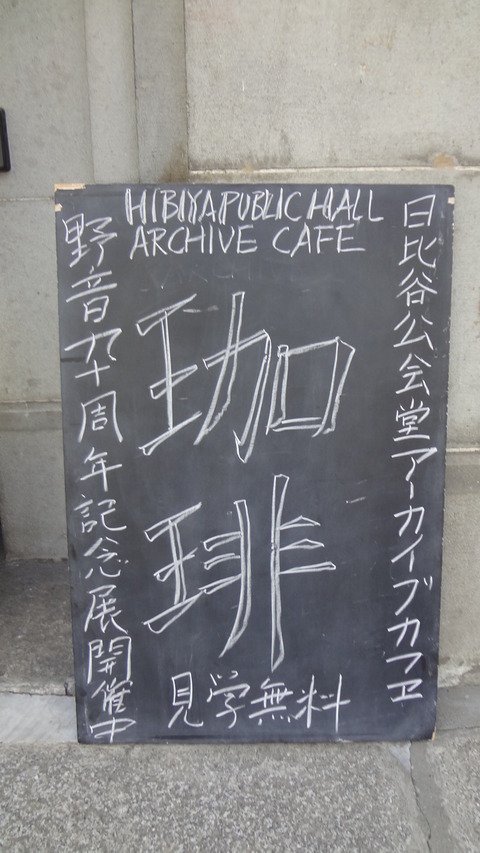 HIBIYA PUBLIC HALL
ARCHIVE CAFE
日比谷公会堂アーカイブカフェ
珈琲
野音九十周年記念展開催中
見学無料